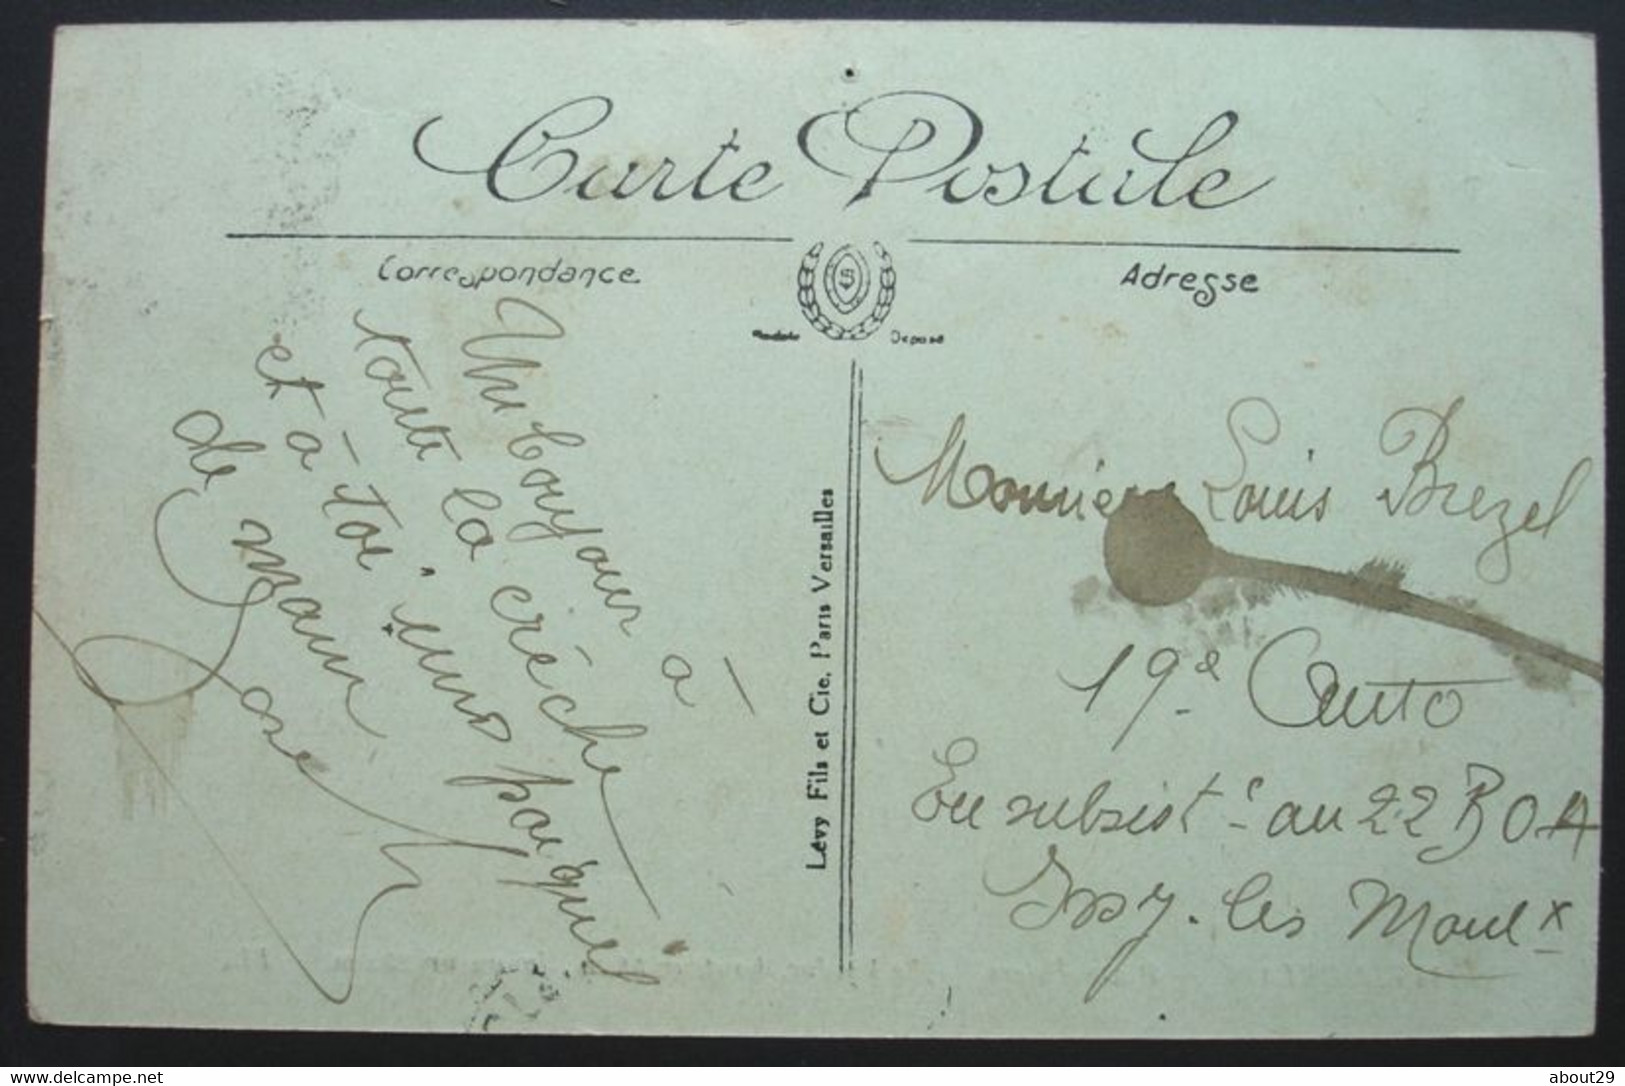 Carte Postale
Correspondance
Adresse
S
Modèle Déposé
Un boujour à
toute la crèche
et à toi une poignée
de main
José
Lévy Fils et Cie, Paris Versailles
Monsieur Louis Brezel
19e Auto
En subsist. ce au 22 B O A
Issy-les Moulx
delcampe.net
about29